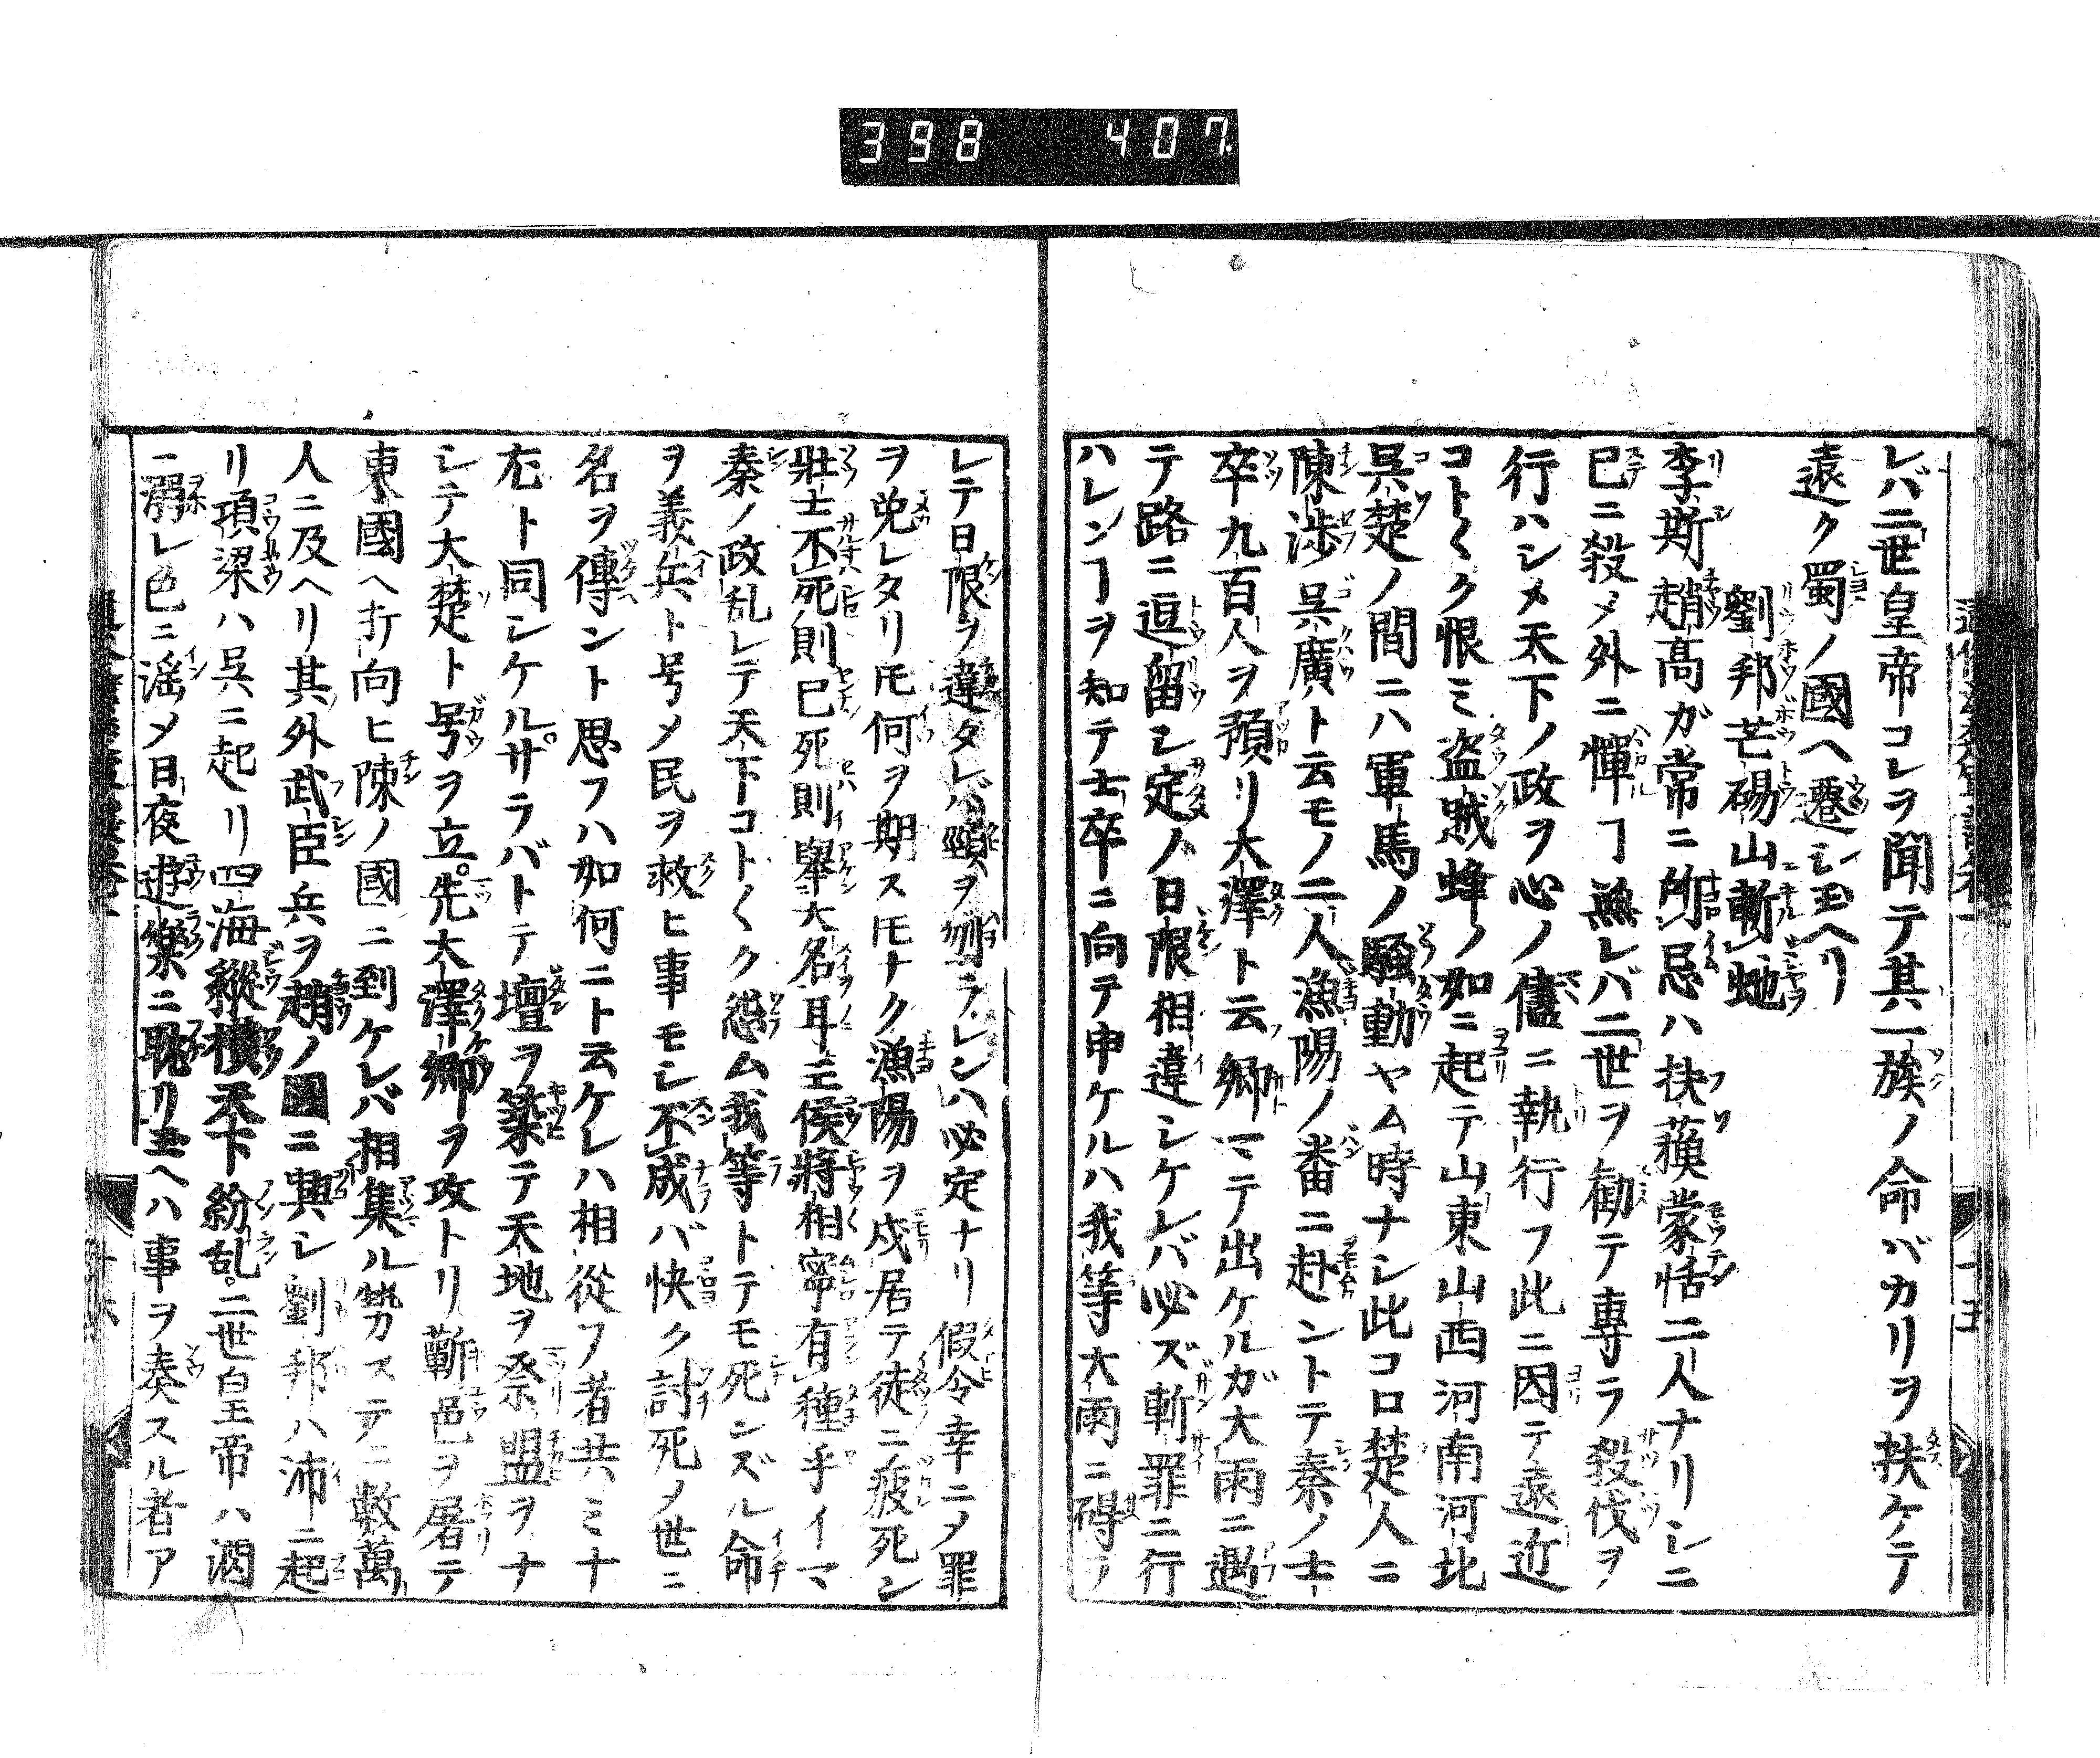 398 407
レバ二世皇帝コレヲ聞テ其一族ノ命バカリヲ扶ケテ
遠ク蜀ノ國ヘ遷シ玉ヘリ
劉邦芒碭山斬蛇
李斯趙高ガ常ニ所忌ハ扶蘇蒙恬二人ナリシニ
已ニ殺メ外ニ憚ヿ無レバ二世ヲ勧テ専ラ殺伐ヲ
行ハシメ天下ノ政ヲ心ノ儘ニ執行フ此ニ因テ遠近
コト〱ク恨ミ盗賊蜂ノ如ニ起テ山東山西河南河北
呉楚ノ間ニハ軍馬ノ騒動ヤム時ナシ此コロ楚人ニ
陳渉呉廣ト云モノ二人漁陽ノ番ニ赴ントテ秦ノ士
卒九百人ヲ預リ大澤ト云郷マテ出ケルガ大雨ニ遇
テ路ニ逗留シ定ノ日限相違シケレバ必ズ斬罪ニ行
ハレンヿヲ知テ士卒ニ向テ申ケルハ我等大雨ニ得
レテ日限ヲ違タレバ頸ヲ刎ラレンハ必定ナリ假令幸ニメ罪
ヲ免レタリ𪜈何ヲ期スモナク漁陽ヲ戍居テ徒ニ疲死ン
壮士不死則已死則舉大名耳王侯將相寧有種乎イマ
秦ノ政乱レテ天下コト〱ク怨ム我等トテモ死ンズル命
ヲ義兵ト号メ民ヲ救ヒ事モシ不成バ快ク討死メ世ニ
名ヲ傳ント思フハ如何ニト云ケレハ相從フ者共ミナ
尤ト同シケル。サラバトテ壇ヲ築テ天地ヲ祭盟ヲナ
シテ大楚ト号ヲ立。先大澤郷ヲ攻トリ蘄邑ヲ屠テ
東國ヘ打向ヒ陳ノ國ニ到ケレバ相集ル勢カステニ数萬
人ニ及ヘリ其外武臣兵ヲ趙ノ國ニ興シ劉邦ハ沛ニ起
リ項梁ハ呉ニ起リ四海縱横天下紛乱。二世皇帝ハ酒
ニ溺レ色ニ滛メ日夜遊樂ニ耽リ玉ヘハ事ヲ奏スル者ア